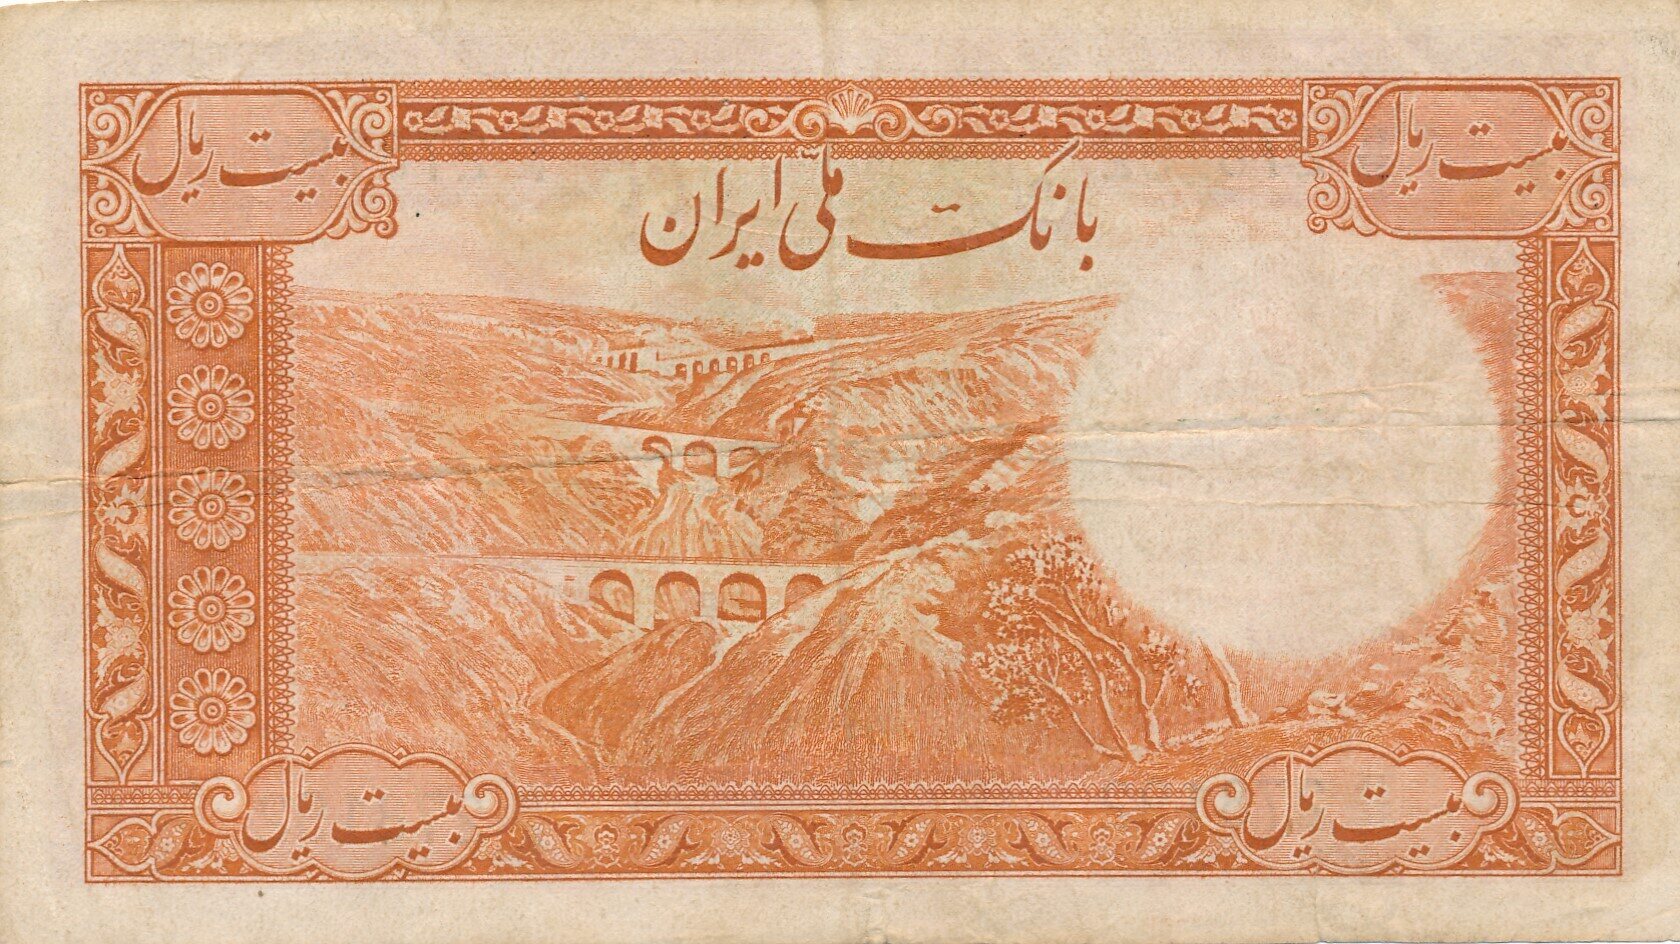 بیست ریال
بیست ریال
بانک ملّی ایران
بیست ریال
بیست ریال